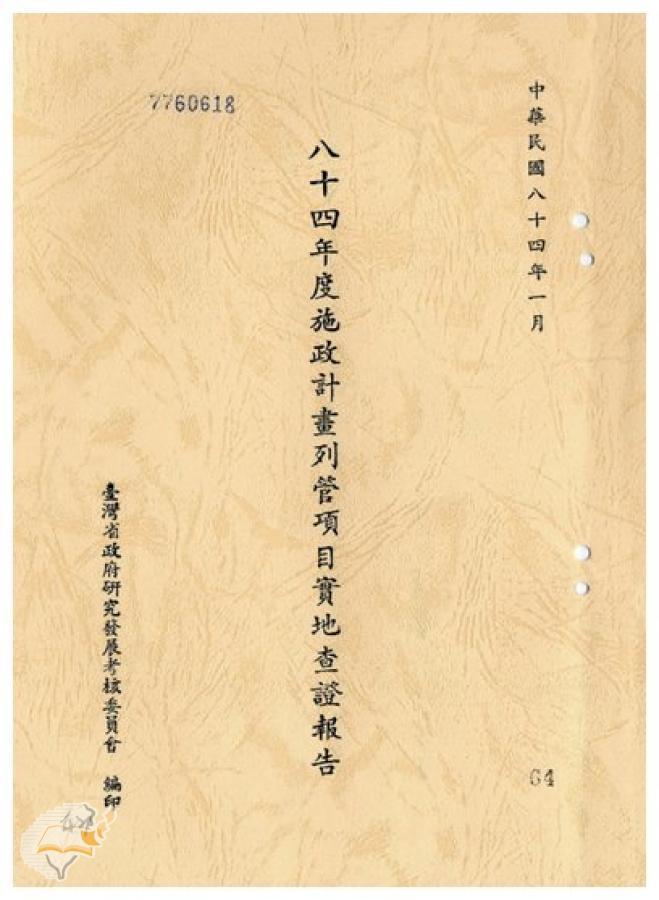 中華民國八十四年一月
7760618
八十四年度施政計畫列管項目實地查證報告
臺灣省政府研究發展考核委員會 編印
64